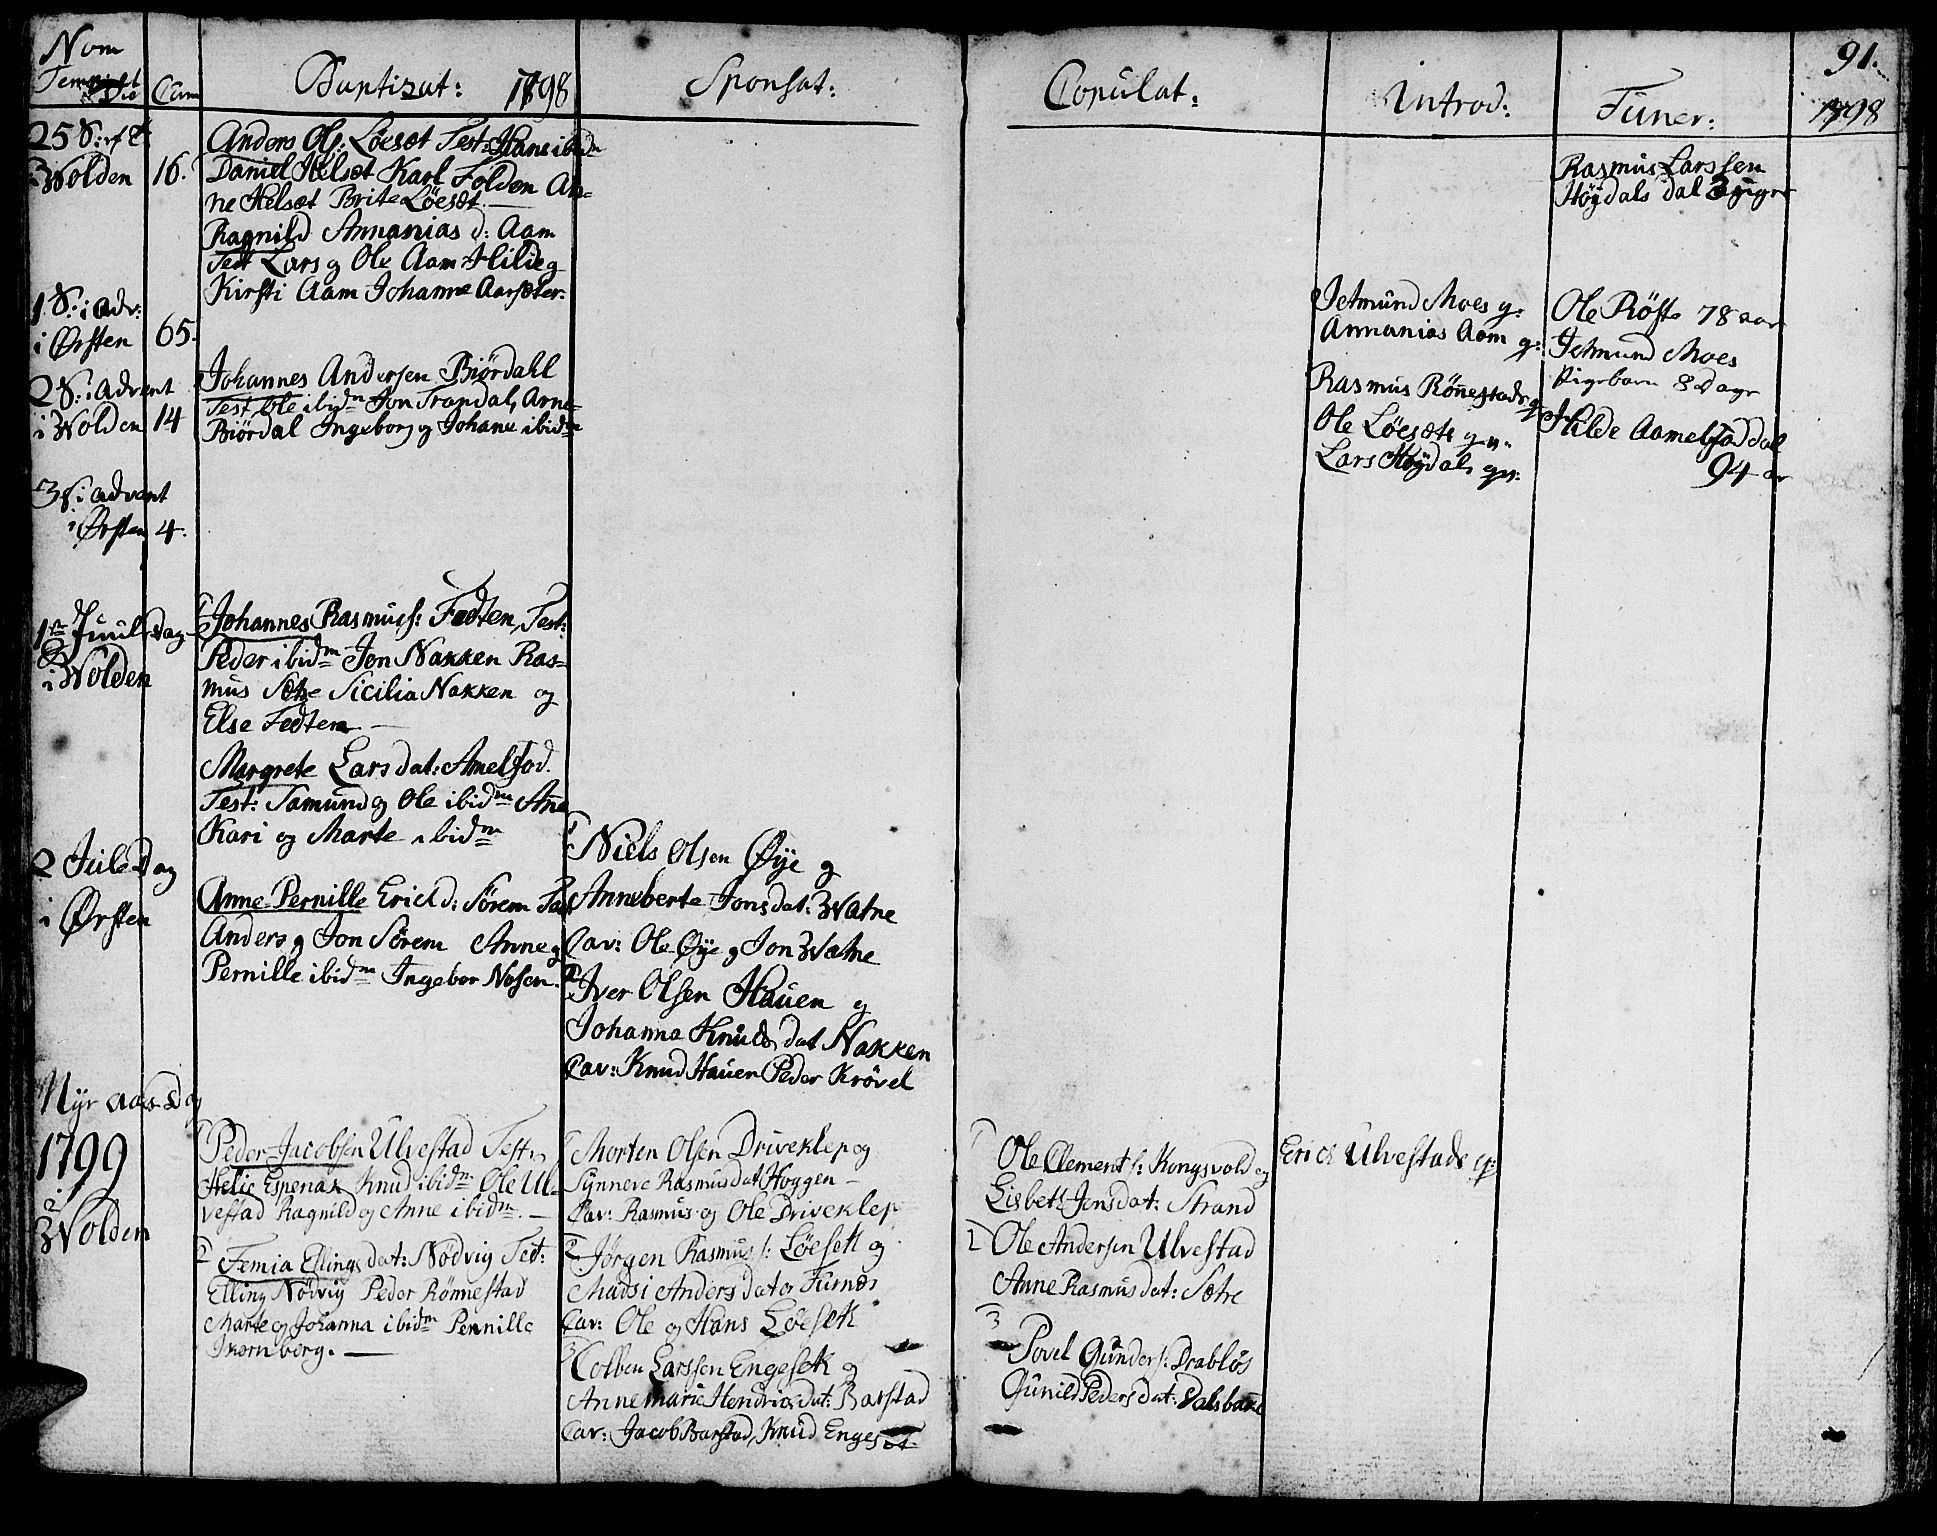 Nom
Temp
Com
Baptizat: 1798
Sponsat:
Copulat:
Introd:
Funer:
91.
1798
25 S: p: T:
i Wolden 16.
Anders Ols: Löesæt Test: Hans ibidm
Daniel Helsæt Karl Folden An-
ne Helsæt Brite Löesæt.
Ragnild Annanias d: Aam
Test Lars og Ole Aam Hilde og
Kirsti Aam Johanne Aarsæter:
Rasmus Larssen
Höydals dal
1 S: i adv:
i Ørsten 65.
Jetmund Moes g:
Annanias Aam g:
Ole Röste 78 aar
Jetmund Moes
Pigebarn 8 Dage
2 S: i advent
i Wolden 14
Johannes Andersen Biördahl
Test Ole ibidm Jon Trandal, Arne
Biördal Ingeborg og Johane ibidm
Rasmus Rönnestads g:
Ole Löesæts gn:
Lars Höydals gn:
Hilde Aamelfod dal
94 ar
3 S: i advent
i Ørsten 4.
1ste Juule Dag
i Wolden
1 Johannes Rasmuss: Fedten, Test:
Peder ibidm Jon Nakken Ras-
mus Sætre Sicilia Nakken og
Else Fedten
Margrete Lars dat: Amelfod.
Test: Samund og Ole ibidm Ane
Kari og Marte ibidm
2 Jule Dag
i Ørsten
Anne Pernille Erick d: Sörem
Anders og Jon Sörem Anne og
Pernille ibidm Ingebor Nosen.
1 Niels Olsen Øye og
Anneberte Jons dat: Watne
Cav: Ole Øye og Jon Watne
2 Iver Olsen Hauen og
Johanna Knuds dat Nakken
Cav: Knud Hauen Peder Krövel
Nyt aars Dag
1799
i
Wolden
1 Peder Jacobsen Ulvestad Test:
Helie Espenas Knud ibidm Ole Ul-
vestad Ragnild og Anne ibidm.
2 Femia Ellings dat: Nödvig Tet:
Elling Nödvig Peder Rönnestad
Marte og Johanna ibidm Pernille
berg.
1 Morten Olsen Driveklep og
Synneve Rasmus dat Hoggen
Cav: Rasmus og Ole Driveklep
2 Jörgen Rasmus s: Löesetk og
Madsi Anders dater Furnæs
Cav: Ole og Hans Löesetk
3 Colben Larssen Engesetk og
Annemarie Hendrics dat: Barstad
Cav: Jacob Barstad, Knud Engeset
1 Ole Clement s: Kongsvold og
Lisbeth Jons dat: Strand
2 Ole Andersen Ulvestad
Anne Rasmus dat: Sætre
3
Povel Gunders: Drabløs
Gunild Peders dat: Dalsbakk
Erick Ulvestads g: